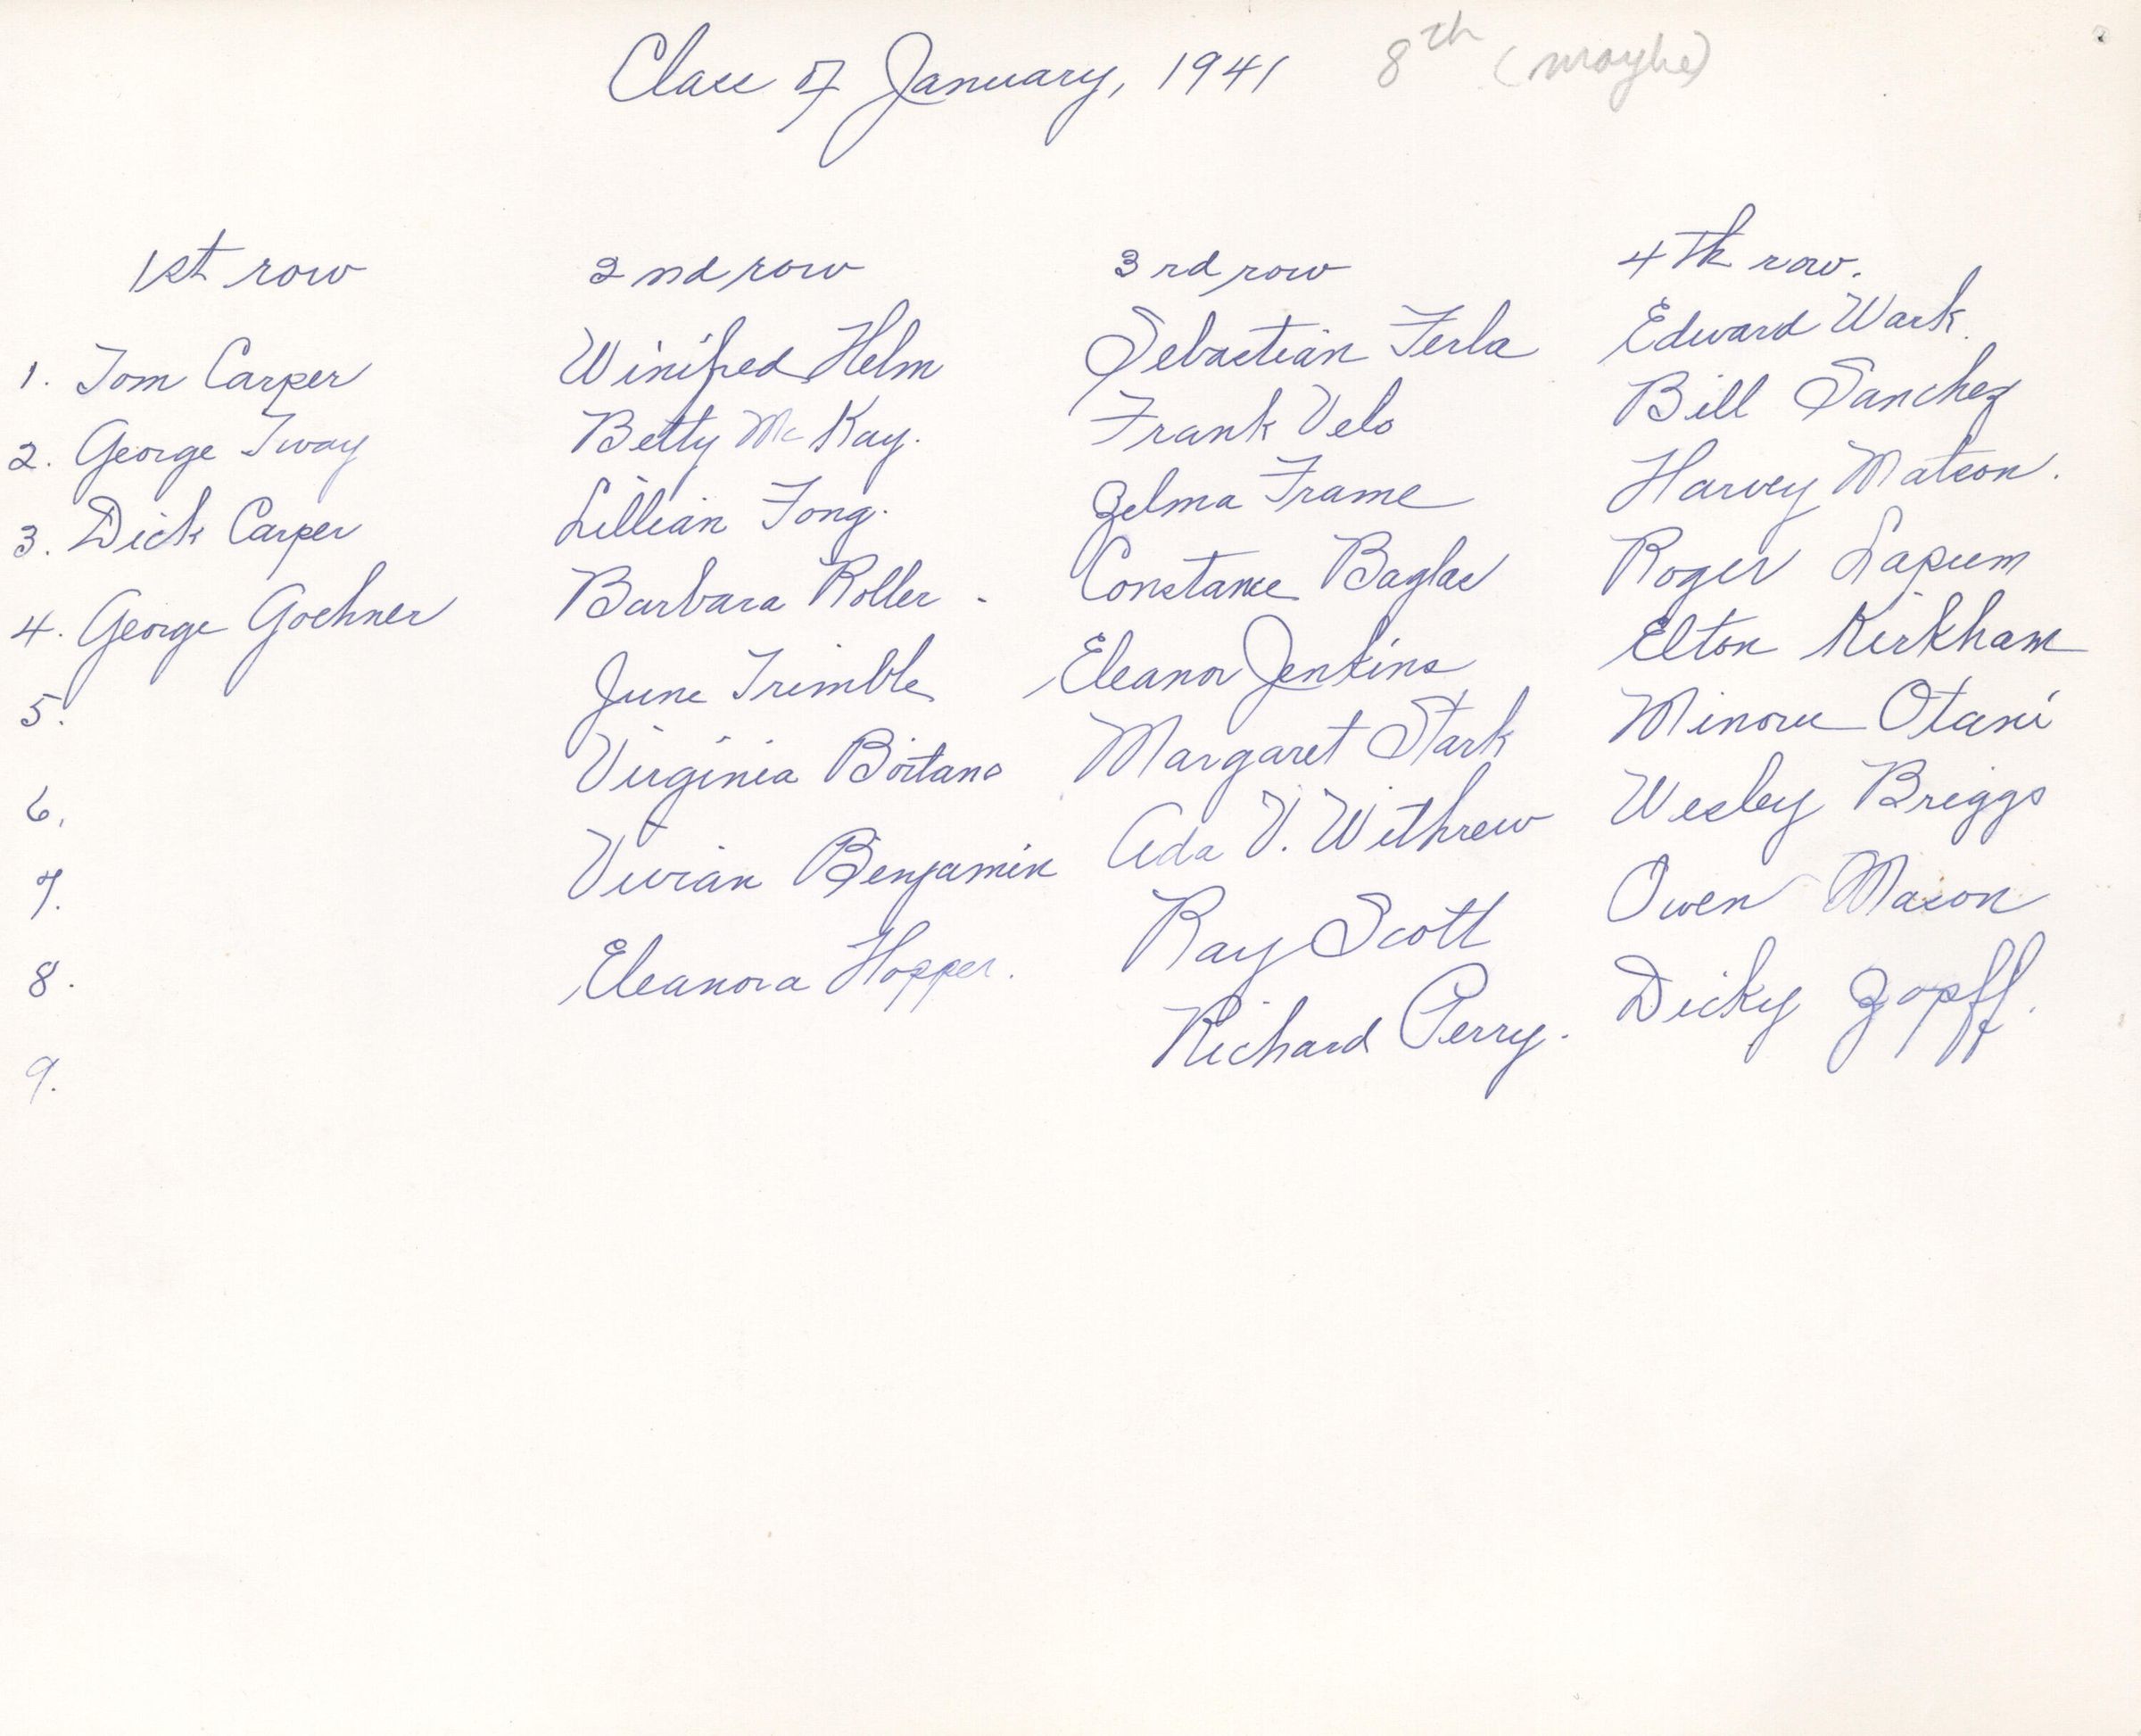 Class of January, 1941 8th (maybe)
1st row
1. Tom Carper
2. George Tway
3. Dick Carper
4. George Goehner
5.
6.
7.
8.
9.
2nd row
Winifred Helm
Betty McKay.
Lillian Fong.
Barbara Roller -
June Trimble
Virginia Boitano
Vivian Benjamin
Eleanora Hopper.
3rd row
Sebastian Terla
Frank Velo
Zelma Frame
Constance Baglas
Eleanor Jenkins
Margaret Stark
Ada V. Withrew
Ray Scott
Richard Perry.
4th row.
Edward Wark.
Bill Sanchez
Harvey Matson.
Roger Lapum
Elton Kirkham
Minoru Otani
Wesley Briggs
Owen Mason
Dicky Zopff.